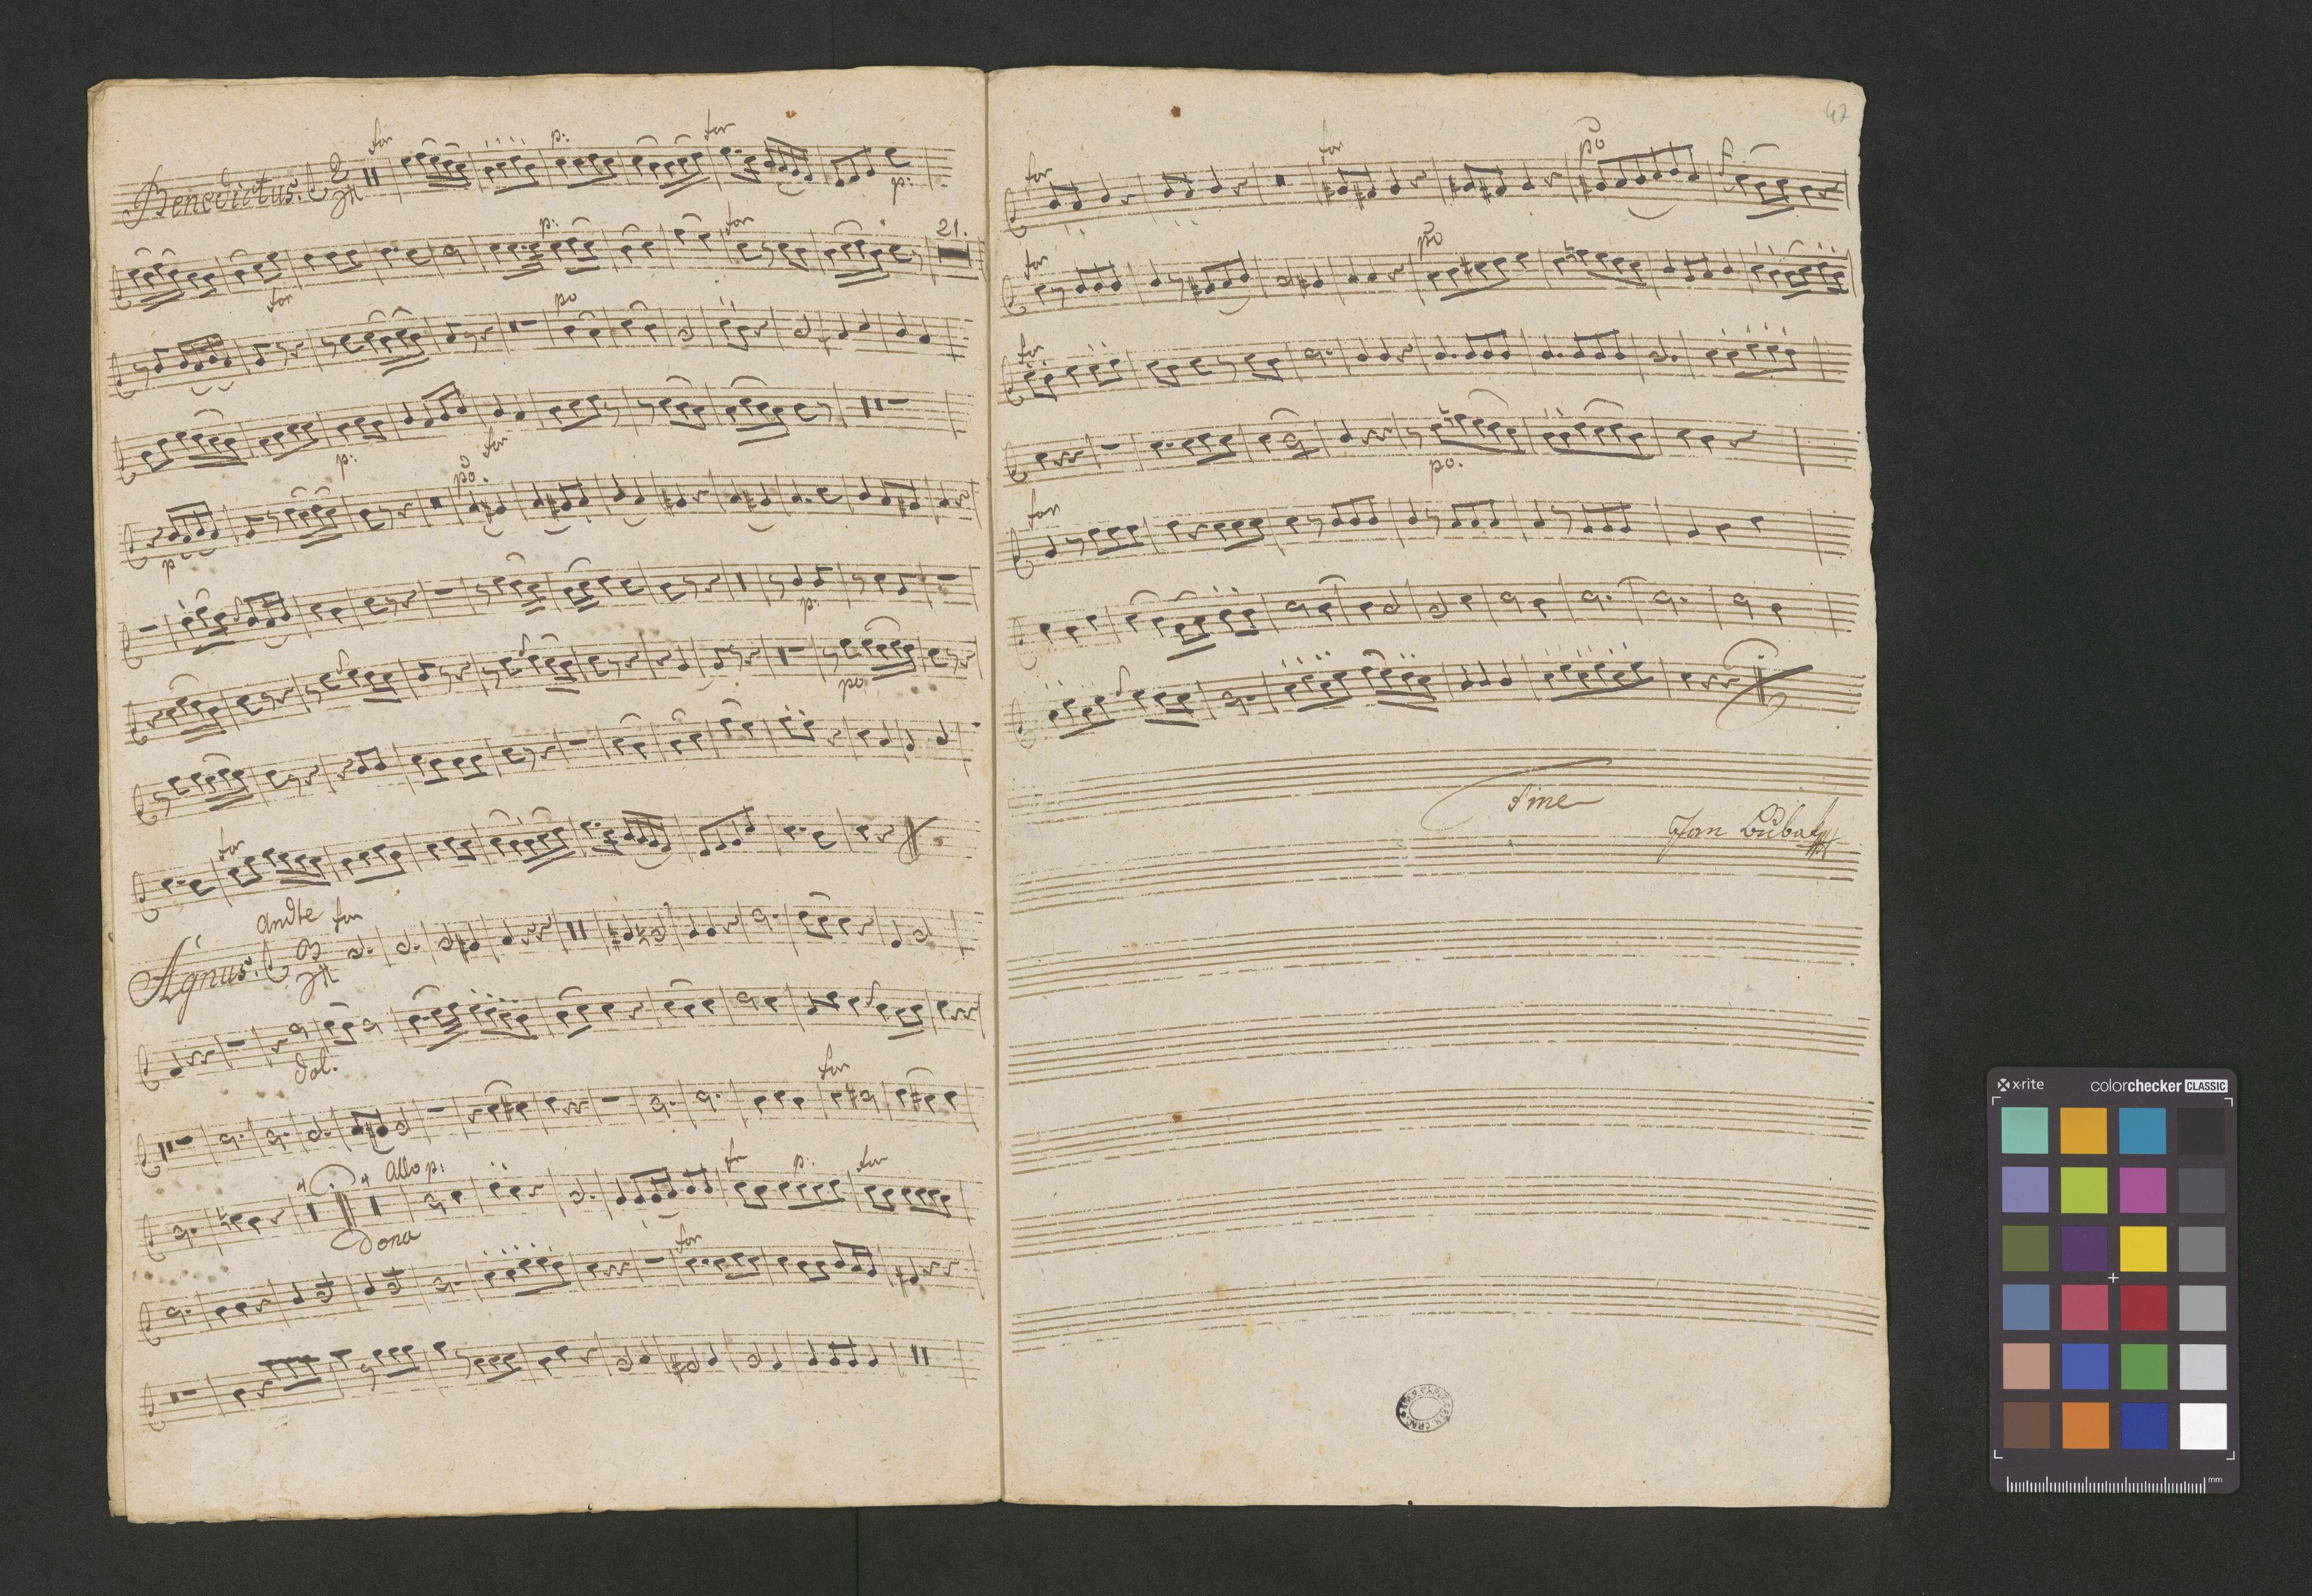 for p: for
Benedictus. 2 p:
p: for 21.
for
po
p:
po. for
p
p:
po
for
Andte for
Agnus. 3
dol.
for
Allo p: for p: for
Dona
for
47
for for po
for po
for
po.
for
Fine
Jan
x-rite colorchecker CLASSIC
mm